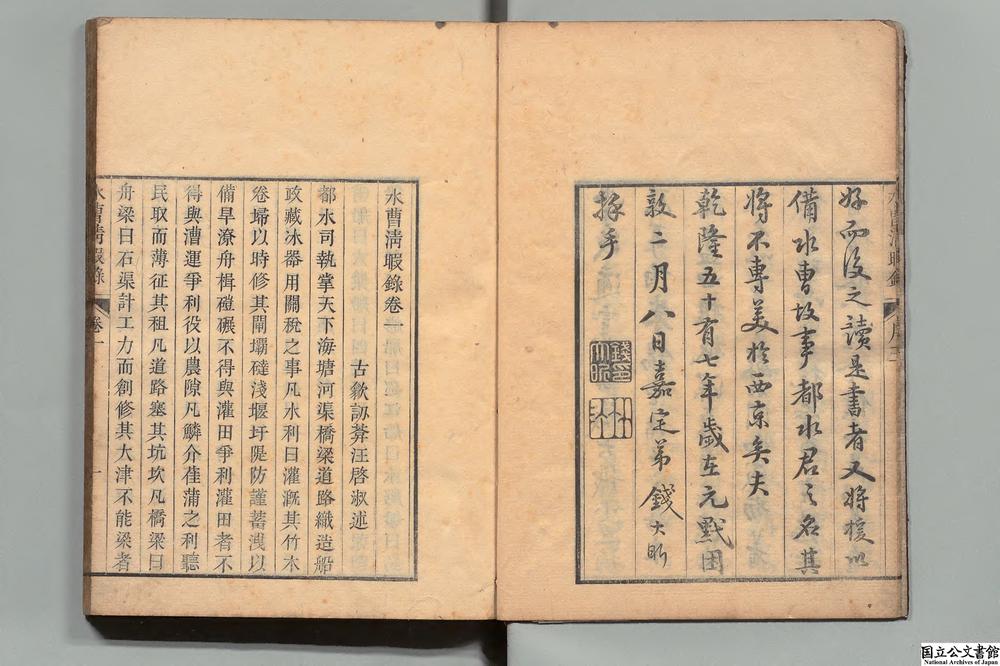 好而後之讀是書者又將援以
備水曹故事都水君之名其
將不專美於西京矣夫
乾隆五十有七年歲在元黓困
敦二月八日嘉定弟錢大昕
拜手
錢印大昕
水曹淸暇錄卷
古歙訒葊汪啓淑述
都水司執掌天下海塘河渠橋梁道路織造船
政藏冰器用關稅之事凡水利曰灌漑其竹木
卷埽以時修其閘壩㳠淺堰圩隄防謹蓄洩以
備旱潦舟楫磑碾不得與灌田爭利灌田者不
得與漕運爭利役以農隙凡鱗介萑蒲之利聽
民取而薄征其租凡道路塞其坑坎凡橋梁曰
舟梁曰石渠計工力而創修其大津不能梁者
水曹淸暇錄 卷一 一
国立公文書館
National Archives of Japan